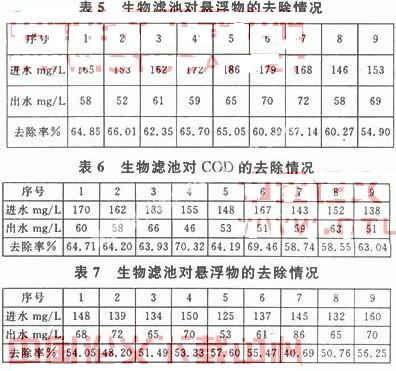 表 5 生物滤池对悬浮物的去除情况
序号 1 2 3 4 5 6 7 8 9
进水 mg/L 165 153 162 172 186 179 168 146 153
出水 mg/L 58 52 61 59 65 70 72 58 69
去除率% 64.85 66.01 62.35 65.70 65.05 60.89 57.14 60.27 54.90
表 6 生物滤池对 COD 的去除情况
序号 1 2 3 4 5 6 7 8 9
进水 mg/L 170 162 183 155 148 167 143 152 138
出水 mg/L 60 58 66 46 53 51 59 63 51
去除率% 64.71 64.20 63.93 70.32 64.19 69.46 58.74 58.55 63.04
表 7 生物滤池对悬浮物的去除情况
序号 1 2 3 4 5 6 7 8 9
进水 mg/L 148 139 134 150 125 137 145 132 160
出水 mg/L 68 72 65 70 53 61 86 65 70
去除率% 54.05 48.20 51.49 53.33 57.60 55.47 40.69 50.76 56.25